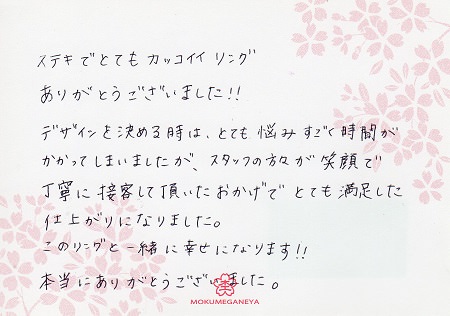 ステキでとてもカッコイイリング
ありがとうございました!!
デザインを決める時は、とても悩みすごく時間が
かかってしまいましたが、スタッフの方々が笑顔で
丁寧に接客して頂いたおかげでとても満足した
仕上がりになりました。
このリングと一緒に幸せになります!!
本当にありがとうございました。
MOKUMEGANEYA